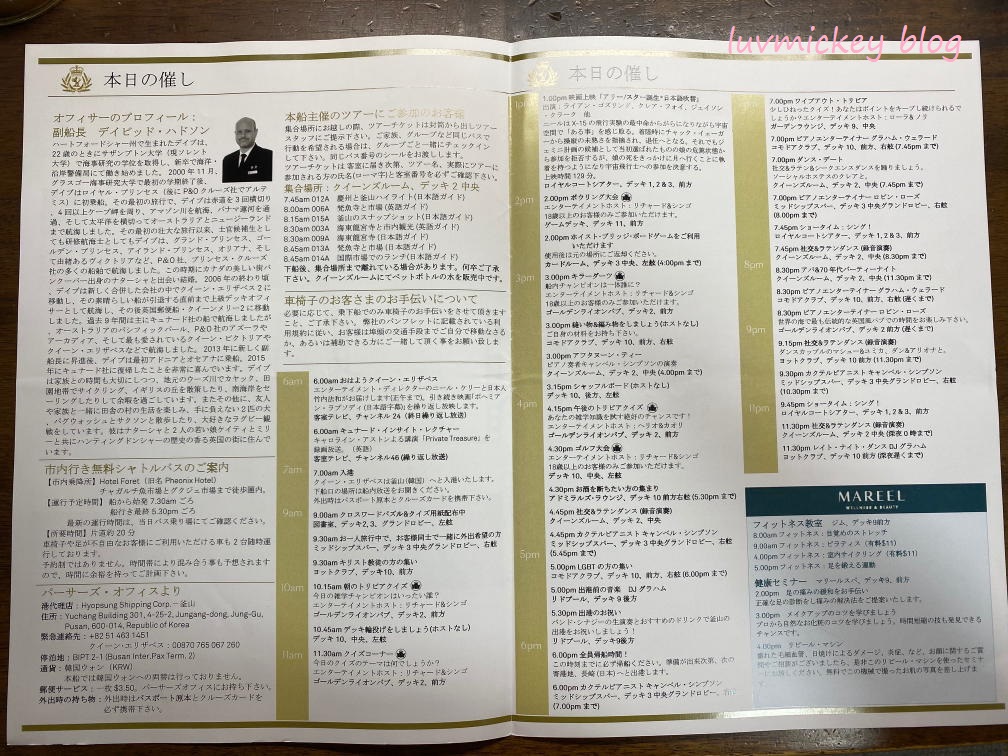 luvmickey blog
本日の催し
オフィサーのプロフィール：
副船長 デイビッド・ハドソン
ハートフォードシャー州で生まれたデイブは、
22 歳のときにサザンプトン大学（現ソレント
大学）で海事研究の学位を取得し、新卒で海洋・
沿岸警備局にて働き始めました。 2000 年 11 月、
グラスゴー海事研究大学で最初の学期終了後、
デイブはロイヤル・プリンセス（後に P&O クルーズ社でアルテ
ミス）に初乗船。その最初の旅行で、デイブは赤道を 3 回横切り
、4 回以上ケープ岬を周り、アマゾン川を航海、パナマ運河を通
過、そして太平洋を横切ってオーストラリアとニュージーランド
まで航海しました。その最初の壮大な旅行以来、士官候補生とし
ても研修航海士としてもデイブは、グランド・プリンセス、ゴー
ルデン・プリンセス、アイランド・プリンセス、オリアナ、そし
て由緒あるヴィクトリアなど、P&O 社、プリンセス・クルーズ
社の多くの船舶で航海しました。この時期にカナダの美しい街バ
ンクーバー出身のナターシャと出会い結婚。 2006 年の終わり頃
、デイブは新しく合併した会社の中でクイーン・エリザベス 2 に
移動し、その素晴らしい船が引退する直前まで上級デッキオフィ
サーとして航海し、その後英国郵便船・クイーンメリー2 に移動
しました。過去 9 年間は主にキュナード社の船で航海しましたが
、オーストラリアのパシフィックパール、P&O 社のアズーラや
アーカディア、そして最も愛されているクイーン・ビクトリアや
クイーン・エリザベスなどで航海しました。2013 年に新しく副
船長に昇進後、デイブは最初アドニアとオセアナに乗船。2015
年にキュナード社に復帰したことを非常に喜んでいます。デイブ
は家族との時間も大切にしつつ、地元のウーズ川でカヤック、田
園地帯でサイクリング、イギリスの丘を散策したり、南海岸をセ
ーリングしたりして余暇を過ごしています。またその他に、友人
や家族と一緒に田舎の村の生活を楽しみ、手に負えない 2 匹の犬
、パグウォッシュとサクソンと散歩したり、大好きなラグビー観
戦をしています。彼はナターシャと 2 人の若い娘ケイティとミリ
ーと共にハンティングドンシャーの歴史の香る英国の街に住んで
います。
市内行き無料シャトルバスのご案内
【市内乗降所】Hotel Foret（旧名 Pheonix Hotel）
チャガルチ魚市場とグクジェ市場まで徒歩圏内。
【運行予定時間】船から始発 7.30am ごろ
船行き最終 5.30pm ごろ
最新の運行時間は、当日バス乗り場にてご確認ください。
【所要時間】片道約 20 分
車椅子や足が不自由なお客様にご利用いただける車も 2 台随時運
行しております。
予約制ではありません。時間帯により混み合う事も予想されます
ので、時間に余裕を持ってご計画下さい。
パーサーズ・オフィスより
港代理店：Hyopsung Shipping Corp. ―釜山
住所：Yuchang Building 301, 4-25-2, Jungang-dong, Jung-Gu,
Pusan, 600-014, Republic of Korea
緊急連絡先：+82 51 463 1451
クイーン・エリザベス：00870 765 067 260
停泊地：BIPT 2-1 (Busan Inter.Pax Term. 2)
通貨：韓国ウォン（KRW）
本船では韓国ウォンへの両替は行っておりません。
郵便サービス：一枚 $3.50。パーサーズオフィスにお持ち下さい。
外出時の持ち物：外出時はパスポート原本とクルーズカードを
必ず携帯下さい。
本船主催のツアーにご参加のお客様
集合場所にお越しの際、ツアーチケットは封筒から出しツアー
スタッフにご提示下さい。ご家族、グループなど同じバスで
行動を希望される場合は、グループごと一緒にチェックイン
して下さい。同じバス番号のシールをお渡しします。
ツアーチケットは客室に届き次第、ツアー名、実際にツアーに
参加される方の氏名(ローマ字)と客室番号を必ずご確認下さい。
集合場所：クイーンズルーム、デッキ 2 中央
7.45am 012A 慶州と釜山ハイライト(日本語ガイド)
8.00am 006A 梵魚寺と市場 (英語ガイド)
8.15am 015A 釜山のスナップショット(日本語ガイド)
8.30am 003A 海東龍宮寺と市内観光 (英語ガイド)
8.30am 009A 海東龍宮寺 (日本語ガイド)
8.45am 013A 梵魚寺と市場 (日本語ガイド)
8.45am 014A 国際市場でのランチ(日本語ガイド)
下船後、集合場所まで離れている場合があります。何卒ご了承
下さい。クイーンズルームにてペットボトルの水を販売中です。
車椅子のお客さまのお手伝いについて
必要に応じて、乗下船でのみ車椅子のお手伝いをさせて頂きます
こと、ご了承下さい。 弊社のパンフレットに記載されている利
用規約に従い、お客様は埠頭の交通手段までご自分で移動なさる
か、あるいは補助できる方にご一緒して頂く事をお願い致しま
す。
6am
6.00am おはようクイーン・エリザベス
エンターテイメント・ディレクターのニール・ケリーと日本人
竹内法和がお届けします(正午まで)。引き続き映画『ボヘミア
ン・ラプソディ(日本語字幕)』を繰り返し放映します。
客室テレビ、チャンネル 24 （終日繰り返し放送）
6.00am キュナード・インサイト・レクチャー
キャロライン・アストンによる講演「Private Treasure」を
録画放送。（英語）
客室テレビ、チャンネル46（繰り返し放送）
7am
7.00am 入港
クイーン・エリザベスは釜山(韓国)へと入港いたします。
下船口の場所は船内放送をお聞きください。
外出時はパスポート原本とクルーズカードを携帯下さい。
9am
9.00am クロスワードパズル&クイズ用紙配布中
図書室、デッキ2、3、グランドロビー、左舷
9.30am お一人旅行中で、お客様同士で一緒に外出希望の方
ミッドシップスバー、デッキ 3 中央グランドロビー、右舷
9.30am キリスト教徒の方の集い
ヨットクラブ、デッキ10、前方
10am
10.15am 朝のトリビアクイズ
今日の雑学チャンピオンはいったい誰？
エンターテイメントホスト：リチャード&シンゴ
ゴールデンライオンパブ、デッキ 2、前方
10.45am デッキ輪投げをしましょう(ホストなし)
デッキ 10、中央、左舷
11am
11.30am クイズコーナー
今日のクイズのテーマは何でしょうか？
エンターテイメントホスト：リチャード&シンゴ
ゴールデンライオンパブ、デッキ2、前方
本日の催し
1pm
1.00pm 映画上映「アリー/スター誕生*日本語吹替」
出演：ライアン・ゴズリング、クレア・フォイ、ジェイソン
・クラーク 他
上映時間 129 分。
ロイヤルコートシアター、デッキ 1, 2 & 3、前方
2pm
2.00pm ボウリング大会
エンターテイメントホスト：リチャード&シンゴ
18歳以上のお客様のみご参加いただけます。
ゲームデッキ、デッキ 11、前方
2.00pm ホイスト・ブリッジ・ボードゲームをご利用
いただけます
使用後は元の場所にご返却ください。
カードルーム、デッキ 3 中央、左舷 (4:00pm まで)
3pm
3.00pm キラーダーツ
船内チャンピオンは一体誰に？
エンターテイメントホスト：リチャード&シンゴ
18歳以上のお客様のみご参加いただけます。
ゴールデンライオンパブ、デッキ2、前方
3.00pm 縫い物&編み物をしましょう(ホストなし)
ご自身の材料をお持ち下さい。
コモドアクラブ、デッキ 10、前方、右舷
3.00pm アフタヌーン・ティー
ピアノ奏者キャンベル・シンプソンの演奏
クイーンズルーム、デッキ 2、中央 (4.00pm まで)
3.15pm シャッフルボード (ホストなし)
デッキ 10、後方、左舷
4pm
4.15pm 午後のトリビアクイズ
あなたの雑学知識を試す絶好のチャンスです！
エンターテイメントホスト：ヘリオ&カオリ
ゴールデンライオンパブ、デッキ 2、前方
4.30pm ゴルフ大会
エンターテイメントホスト：リチャード&シンゴ
18歳以上のお客様のみご参加いただけます。
デッキ 10、中央、左舷
4.30pm お酒を断ちたい方の集まり
アドミラルズ・ラウンジ、デッキ 10 前方右舷 (5.30pm まで)
4.45pm 社交&ラテンダンス (録音演奏)
クイーンズルーム、デッキ 2、中央
4.45pm カクテルピアニスト キャンベル・シンプソン
ミッドシップスバー、デッキ 3 中央グランドロビー、右舷
(5.45pm まで)
5pm
5.00pm LGBT の方の集い
コモドアクラブ、デッキ 10、前方、右舷 (6.00pm まで)
5.00pm 出港前の音楽 DJ グラハム
リドプール、デッキ 9 後方
5.30pm 出港のお祝い
バンド・シナジーの生演奏とおすすめのドリンクで釜山の
出港をお祝いしましょう！
リドプール、デッキ9後方
6pm
6.00pm 全員帰船時間！
この時刻までに必ず帰船ください。準備が出来次第、次の
寄港地、長崎(日本)へと出港します。
6.00pm カクテルピアニスト キャンベル・シンプソン
ミッドシップスバー、デッキ 3 中央グランドロビー、右舷
(7.00pm まで)
7.00pm ワイプアウト・トリビア
少しひねったクイズ！あなたはポイントをキープし続けられるで
しょうか？エンターテイメントホスト：ローラ& ノリ
ガーデンラウンジ、デッキ 9、中央
7.00pm ピアノエンターテイナー グラハム・ウェラード
コモドアクラブ、デッキ 10、前方、右舷 (7.45pm まで)
7.00pm ダンス・デート
社交&ラテン&シークエンスダンスを踊りましょう。
ソーシャルホステスのクレアと。
クイーンズルーム、デッキ 2、中央 (7.45pm まで)
7.00pm ピアノエンターテイナー ロビン・ローズ
ミッドシップスバー、デッキ 3 中央グランドロビー、右舷
(8.00pm まで)
7.45pm ショータイム：シング！
ロイヤルコートシアター、デッキ 1, 2 & 3、前方
8pm
7.45pm 社交&ラテンダンス (録音演奏)
クイーンズルーム、デッキ 2、中央 (8.30pm まで)
8.30pm アバ&70 年代パーティーナイト
クイーンズルーム、デッキ 2、中央 (11.30pm まで)
8.30pm ピアノエンターテイナー グラハム・ウェラード
コモドアクラブ、デッキ 10、前方、右舷(遅くまで)
8.30pm ピアノエンターテイナー ロビン・ローズ
世界の海で最も伝統的な英国風パブでの時間をお楽しみ下さい。
ゴールデンライオンパブ、デッキ 2 前方(遅くまで)
9pm
9.15pm 社交&ラテンダンス (録音演奏)
ダンスカップルのマシュー&ユミカ、ダン&アリオナと。
ヨットクラブ、デッキ 10 前方 (11.30pm まで)
9.30pm カクテルピアニスト キャンベル・シンプソン
ミッドシップスバー、デッキ 3 中央グランドロビー、右舷
(10.30pm まで)
11pm
9.45pm ショータイム：シング！
ロイヤルコートシアター、デッキ 1, 2 & 3、前方
11.30pm 社交&ラテンダンス (録音演奏)
クイーンズルーム、デッキ 2 中央 (深夜 0 時まで)
11.30pm レイト・ナイトダンス DJ グラハム
ヨットクラブ、デッキ 10 前方 (深夜遅くまで)
MAREEL
WELLNESS & BEAUTY
フィットネス教室 ジム、デッキ9前方
8.00am フィットネス：目覚めのストレッチ
9.00am フィットネス：ピラティス（有料$11）
4.00pm フィットネス：室内サイクリング（有料$11）
5.00pm フィットネス：足を鍛える運動
健康セミナー マリールスパ、デッキ9、前方
2.00pm 足の痛みの緩和をお手伝い
正確な足の診断をし痛みの解決法をご提案いたします。
3.00pm メイクアップのコツを学びましょう
プロから自然なお化粧のコツを学びましょう。時間短縮の技も発見できる
チャンスです。
4.00pm リペール・マシン